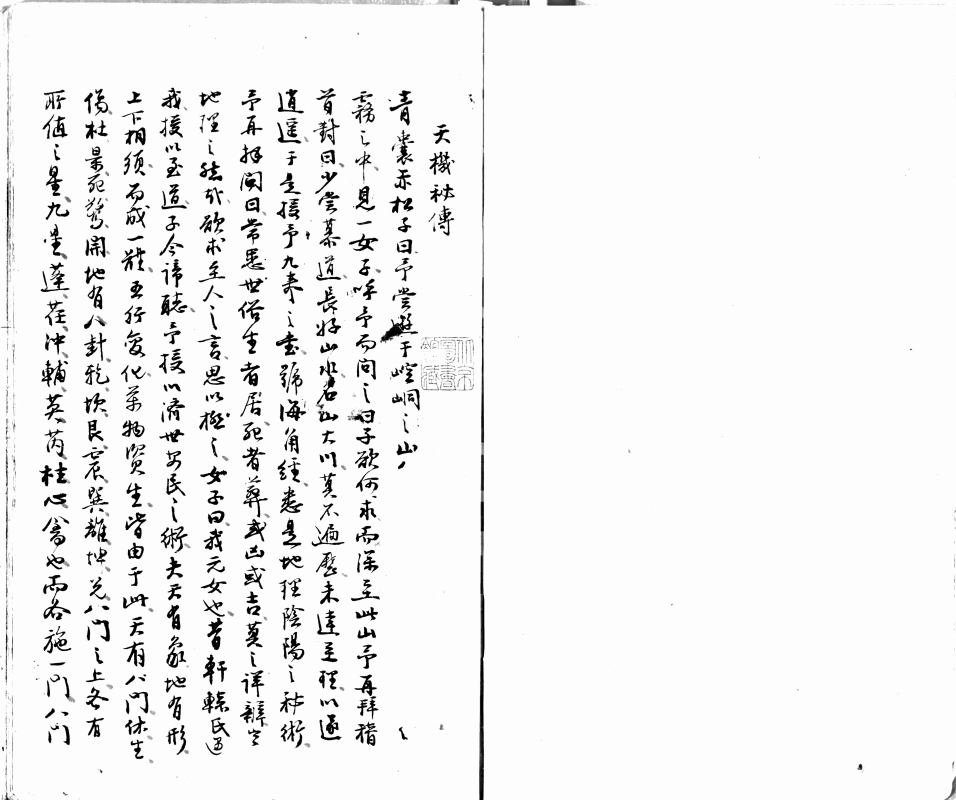 天機祕傳
青囊赤松子曰予嘗遊于崆峒之山
霧之中見一女子呼予而問之曰子欲何求而深至此山予再拜稽
首對曰少嘗慕道長好山水名山大川莫不遍歷未達至理以逐
逍遥于是授予九奉之書號海角經悉是地理陰陽之秘術
予再拜問曰常悉世俗生者居死者葬或凶或吉莫之詳辨豈
地理之然哉欲求至人之言思以極之女子曰我元女也昔軒轅氏
我授以至道子今諦聽予授以濟世安民之術夫天有象地有形
上下相須而成一體五行變化萬物資生皆由于此天有八門休生
傷杜景死驚開地有八卦乾坎艮震巽離坤兌八門之上各有
所值之星九星蓬任冲輔英芮柱心禽也而各施一門八門